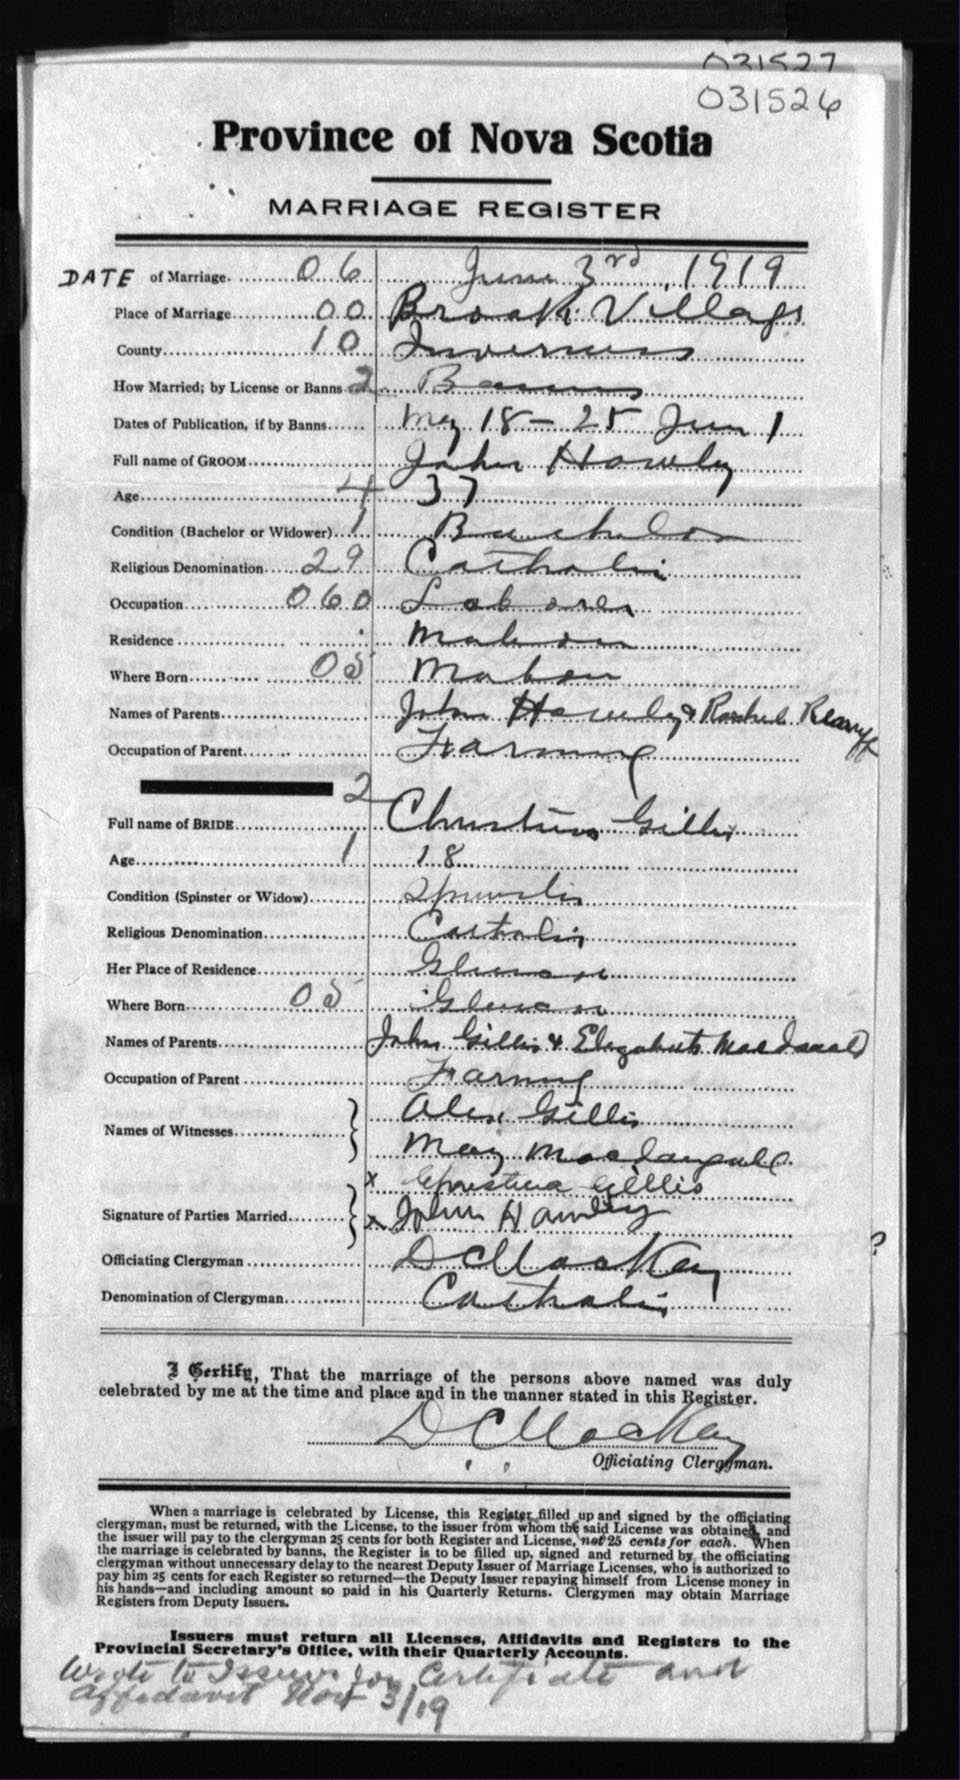 031527
031526
Province of Nova Scotia
MARRIAGE REGISTER
DATE of Marriage. 06 June 3rd, 1919
Place of Marriage 00 Brook Village
County 10 Inverness
How Married; by License or Banns 2 Banns
Dates of Publication, if by Banns May 18 - 25 June 1
Full name of GROOM John Hawley
Age 4 37
Condition (Bachelor or Widower) 1 Bachelor
Religious Denomination 29 Catholic
Occupation 060 Laborer
Residence Mabou
Where Born 05 Mabou
Names of Parents John Hawley & Rachel
Occupation of Parent Farming
2
Full name of BRIDE Christina Gillis
Age 1 18
Condition (Spinster or Widow) Spinster
Religious Denomination Catholic
Her Place of Residence
Where Born 05
Names of Parents John Gillis & Elizabeth MacDonald
Occupation of Parent Farming
Names of Witnesses Alex Gillis
May MacDougall
x Christina Gillis
Signature of Parties Married x John Hawley
Officiating Clergyman D C MacKay ?
Denomination of Clergyman Catholic
I Certify, That the marriage of the persons above named was duly
celebrated by me at the time and place and in the manner stated in this Register.
D C MacKay
Officiating Clergyman.
When a marriage is celebrated by License, this Register filled up and signed by the officiating
clergyman, must be returned, with the License, to the issuer from whom the said License was obtained, and
the issuer will pay to the clergyman 25 cents for both Register and License, not 25 cents for each. When
the marriage is celebrated by banns, the Register is to be filled up, signed and returned by the officiating
clergyman without unnecessary delay to the nearest Deputy Issuer of Marriage Licenses, who is authorized to
pay him 25 cents for each Register so returned—the Deputy Issuer repaying himself from License money in
his hands—and including amount so paid in his Quarterly Returns. Clergymen may obtain Marriage
Registers from Deputy Issuers.
Issuers must return all Licenses, Affidavits and Registers to the
Provincial Secretary's Office, with their Quarterly Accounts.
Wrote to Issuer for Certificate and
Affidavit Nov 3/19